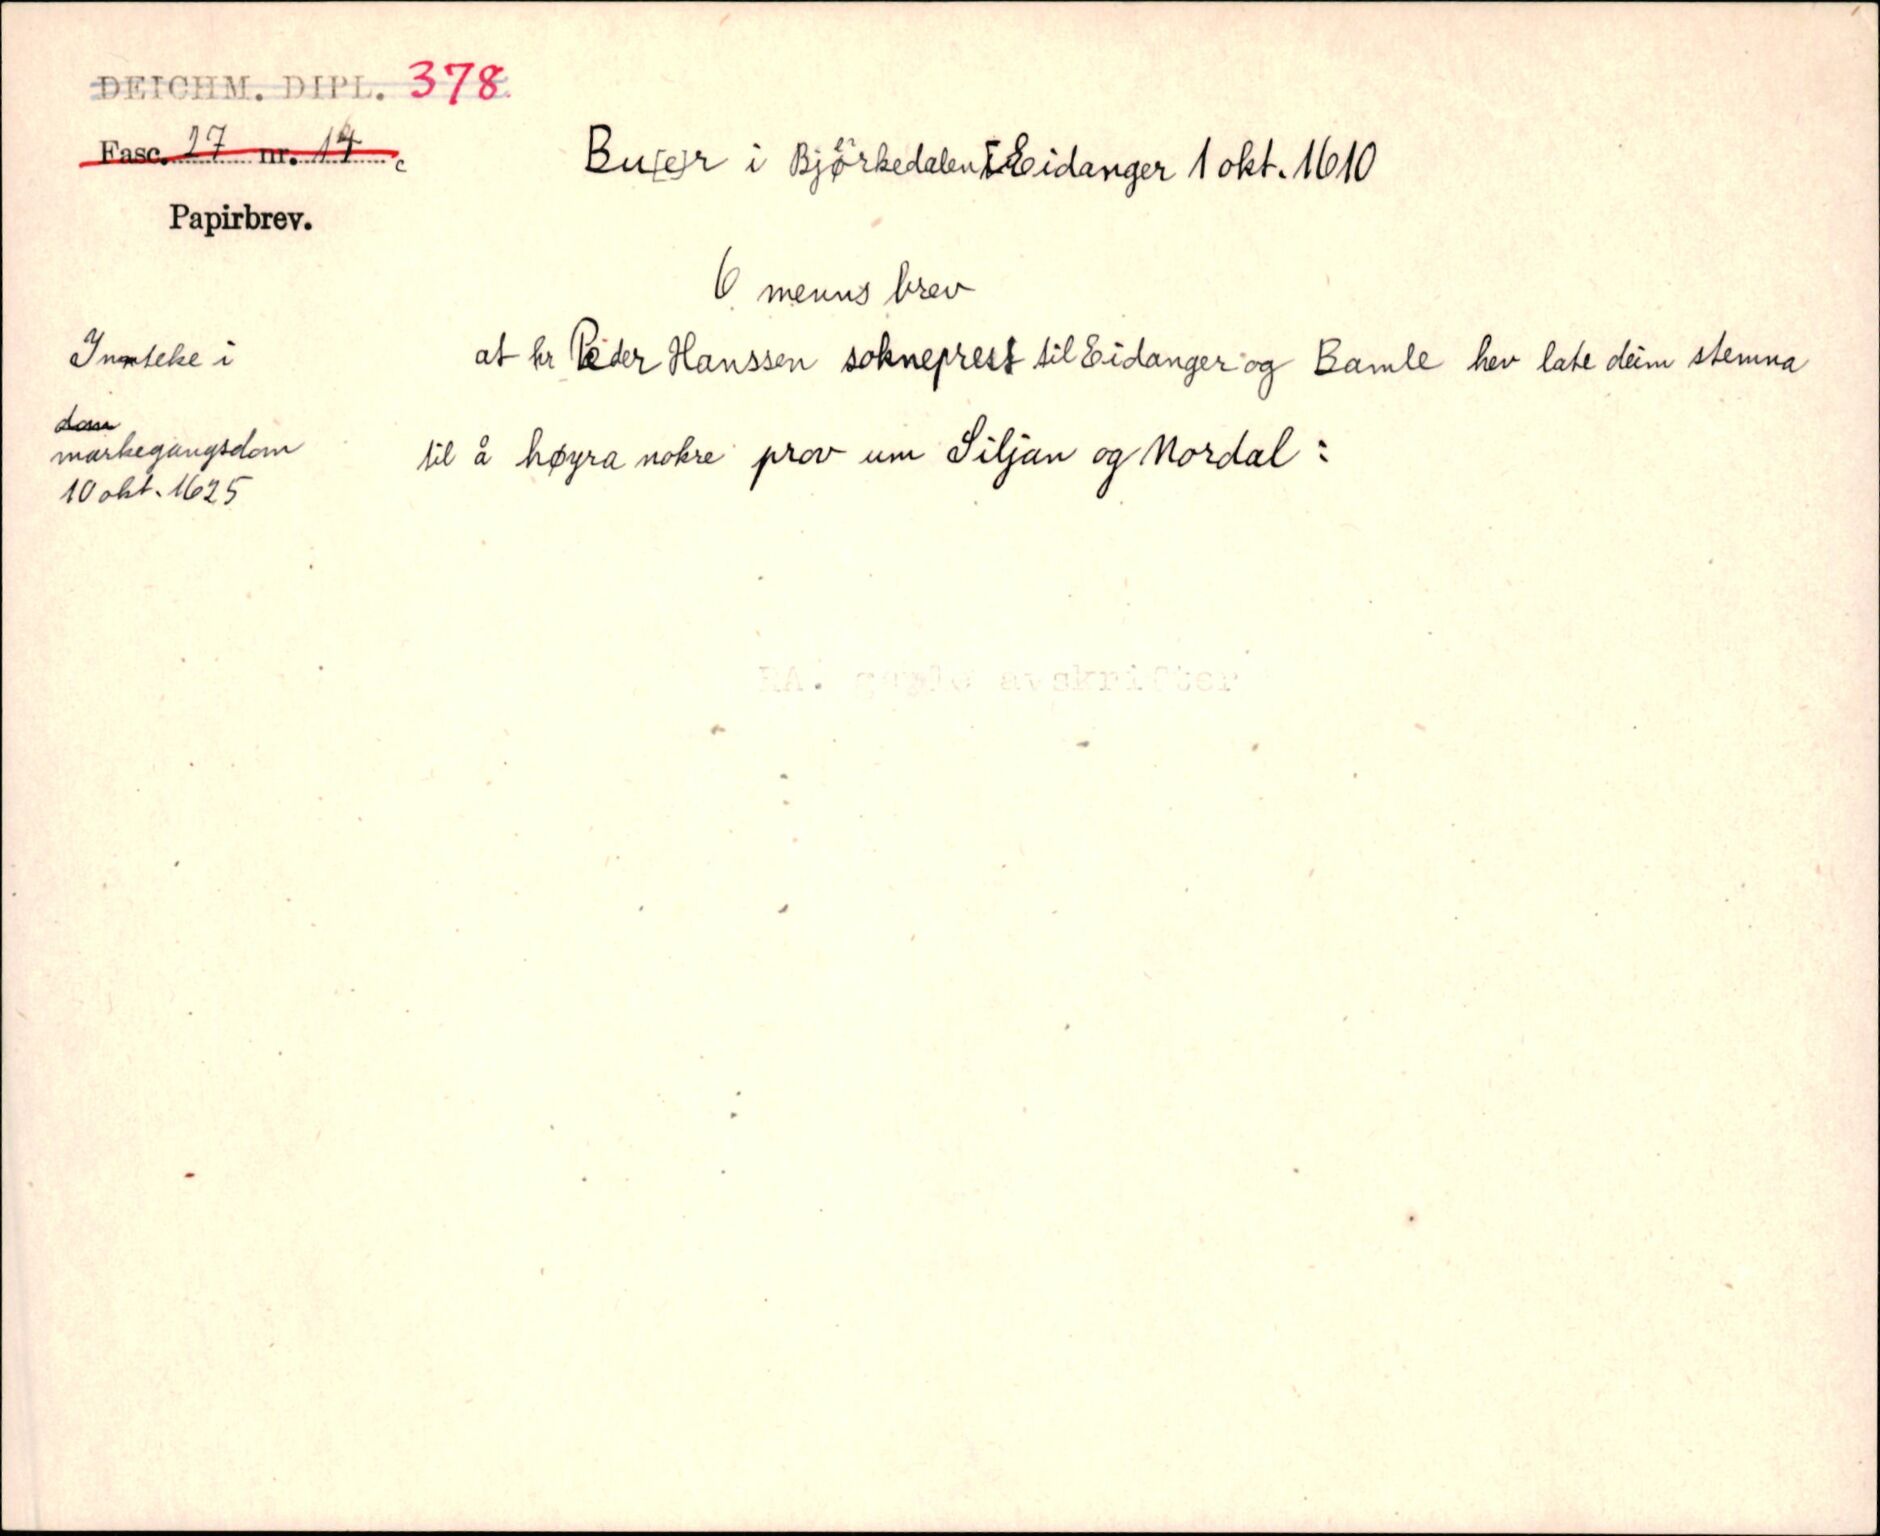 DEICHM. DIPL. 378
Fasc. 27 nr. 14 c
Papirbrev.
Bu(e)r i Bjørkedalen i Eidanger 1 okt. 1610
6 menns brev
Innteke i
dom
markegangsdom
10 okt. 1625
at hr Peder Hanssen sokneprest til Eidanger og Bamle hev late deim stemna
til å høyra nokre prov um Siljan og Nordal:
RA. avskrifter